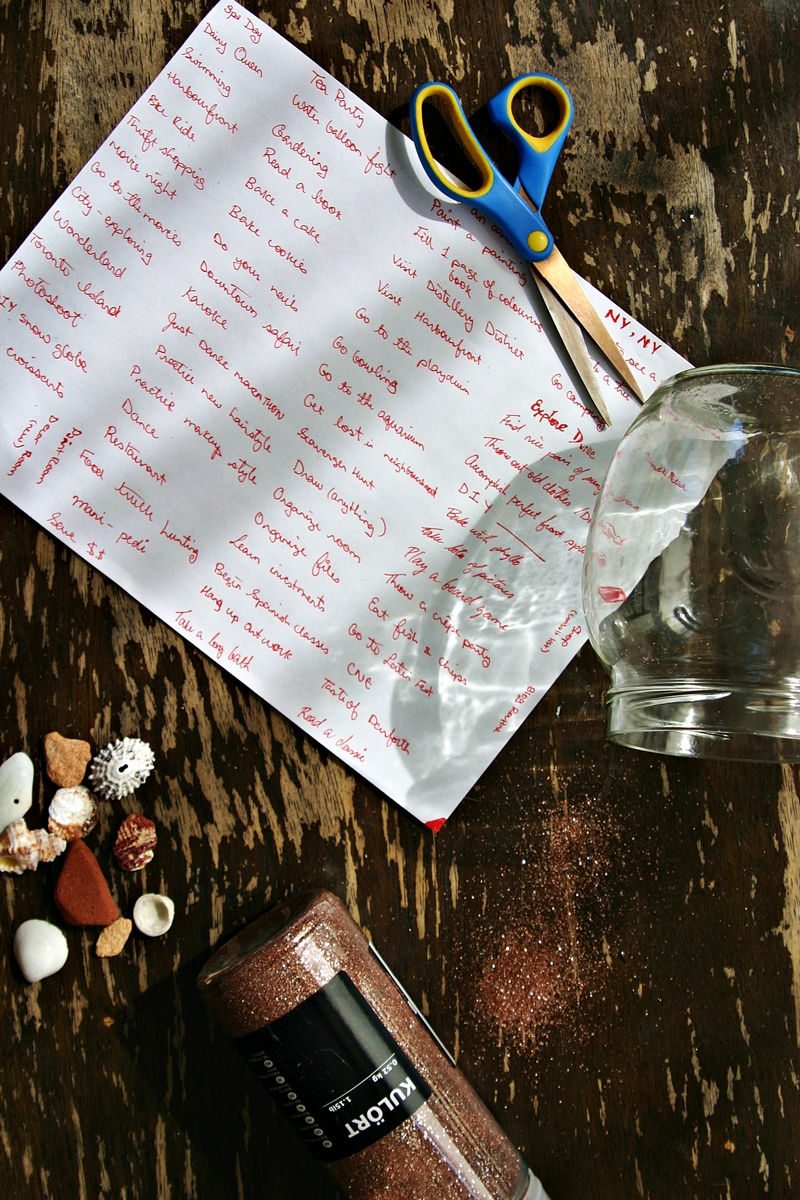 Spa Day
Dairy Queen
Swimming
Harbourfront
Bike Ride
Thrift shopping
Movie night
Go to the movies
City-exploring
Wonderland
Toronto Island
Photoshoot
DIY snow globe
croissants
Tea Party
Water balloon fight
Gardening
Read a book
Bake a cake
Bake cookies
Do your nails
Downtown safari
Karaoke
Just Dance marathon
Practice new hairstyle
Practice makeup style
Dance
Restaurant
Food truck hunting
mani-pedi
Save $$
Paint a painting
Fill 1 page of colouring
book
Visit Distillery District
Visit Harbourfront
Go to the playdium
Go bowling
Go to the aquarium
Get lost in neighbourhood
Scavenger Hunt
Draw (anything)
Organize room
Organize files
Learn investments
Begin Spanish classes
Hang up art work
Take a long bath
NY, NY
to see a
Go camping
Explore D'ville
Find nice pair of
Throw out old clothes
D.I.Y
perfect food
Take lots of pictures
Play a board game
Throw a wine party
Eat fish & chips
Go to Latin Fest
CNE
Taste of Danforth
Read a classic
KULÖRT
0.52 kg
1.15lb